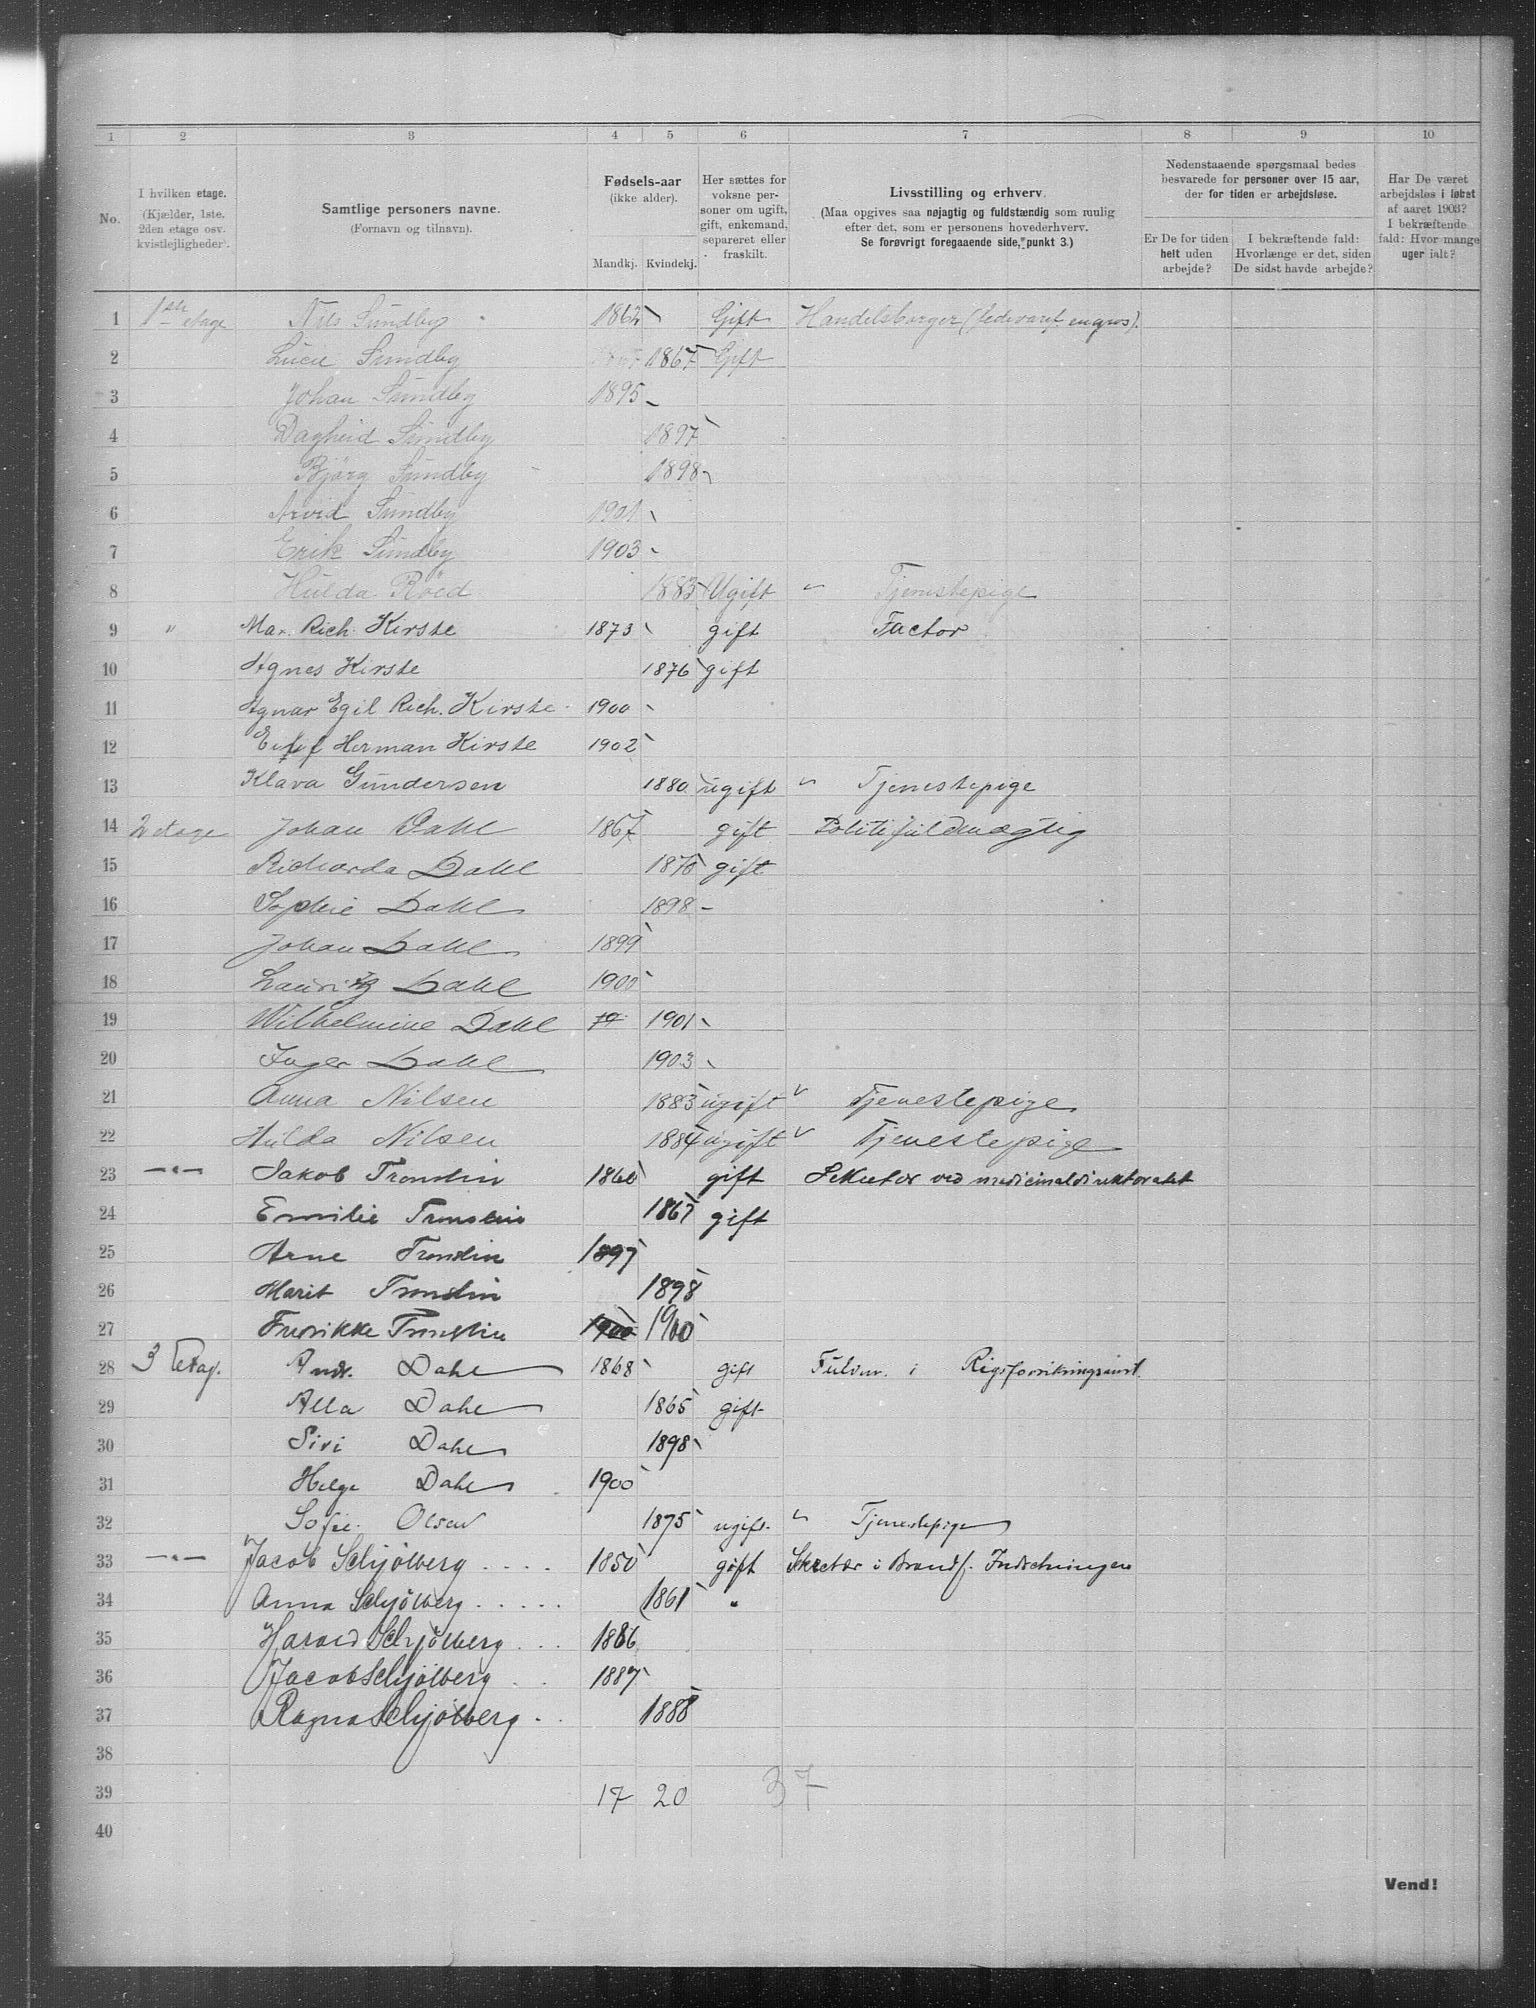 1 2 3 4 5 6 7 8 9 10
No. I hvilken etage. (Kjælder, 1ste. 2den etage osv. kvistlejligheder).
Samtlige personers navne. (Fornavn og tilnavn).
Fødsels-aar (ikke alder). Mandkj. Kvindekj.
Her sættes for voksne personer om ugift, gift, enkemand, separeret eller fraskilt.
Livsstilling og erhverv. (Maa opgives saa nøjagtig og fuldstændig som mulig efter det, som er personens hovederhverv. Se forøvrigt foregaaende side, punkt 3.)
Nedenstaaende spørgsmaal bedes besvarede for personer over 15 aar, der for tiden er arbejdsløse.
Er De for tiden helt uden arbejde?
I bekræftende fald: Hvorlænge er det, siden De sidst havde arbejde?
Har De været arbejdsløs i løbet af aaret 1903? I bekræftende fald: Hvor mange uger ialt?
1 1ste etage Nils Sundby 1862 Gift Handelsborger ( engros).
2 Lucie Sundby 1867 Gift
3 Johan Sundby 1895
4 Dagheid Sundby 1897
5 Bjørg Sundby 1898
6 Arvid Sundby 1901
7 Erik Sundby 1903
8 Hulda Röed 1883 Ugift Tjenestepige
9 " Max. Rich. Kirste 1873 gift Factor
10 Agnes Kirste 1876 gift
11 Agnar Egil Rich. Kirste 1900
12 Herman Kirste 1902
13 Klara Gundersen 1880 ugift Tjenestepige
14 2 etage Johan Dahl 1867 gift Politifuldmægtig
15 Richarda Dahl 1870 gift
16 Sophie Dahl 1898 -
17 Johan Dahl 1899
18 Lauritz Dahl 1900
19 Wilhelmine Dahl 19 1901
20 Inger Dahl 1903
21 Anna Nilsen 1883 ugift Tjenestepige
22 Hulda Nilsen 1884 ugift Tjenestepige
23 —"— Jakob Tromdin 1860 gift Sekretær ved medicinaldirektoratet
24 Emilie 1867 gift
25 Arne Tromdin 1897
26 Marit Tromdin 1898
27 Fredrikke 1900 1900
28 3 Etag. Andr. Dahl 1868 gift Fuldm. i Rigsforsikringsanst.
29 Alla Dahl 1865 gift
30 Siri Dahl 1898
31 Helge Dahl 1900
32 Sofie Olsen 1875 ugift Tjenestepige
33 —"— Jacob Schjölberg 1850 gift Sekretær i Brandf. Indretningen
34 Anna Schjölberg 1861 "
35 Harald Schjölberg 1886
36 Jacob Schjölberg 1887
37 Ragna Schjölberg 1888
38
39 17 20 37
40
Vend!